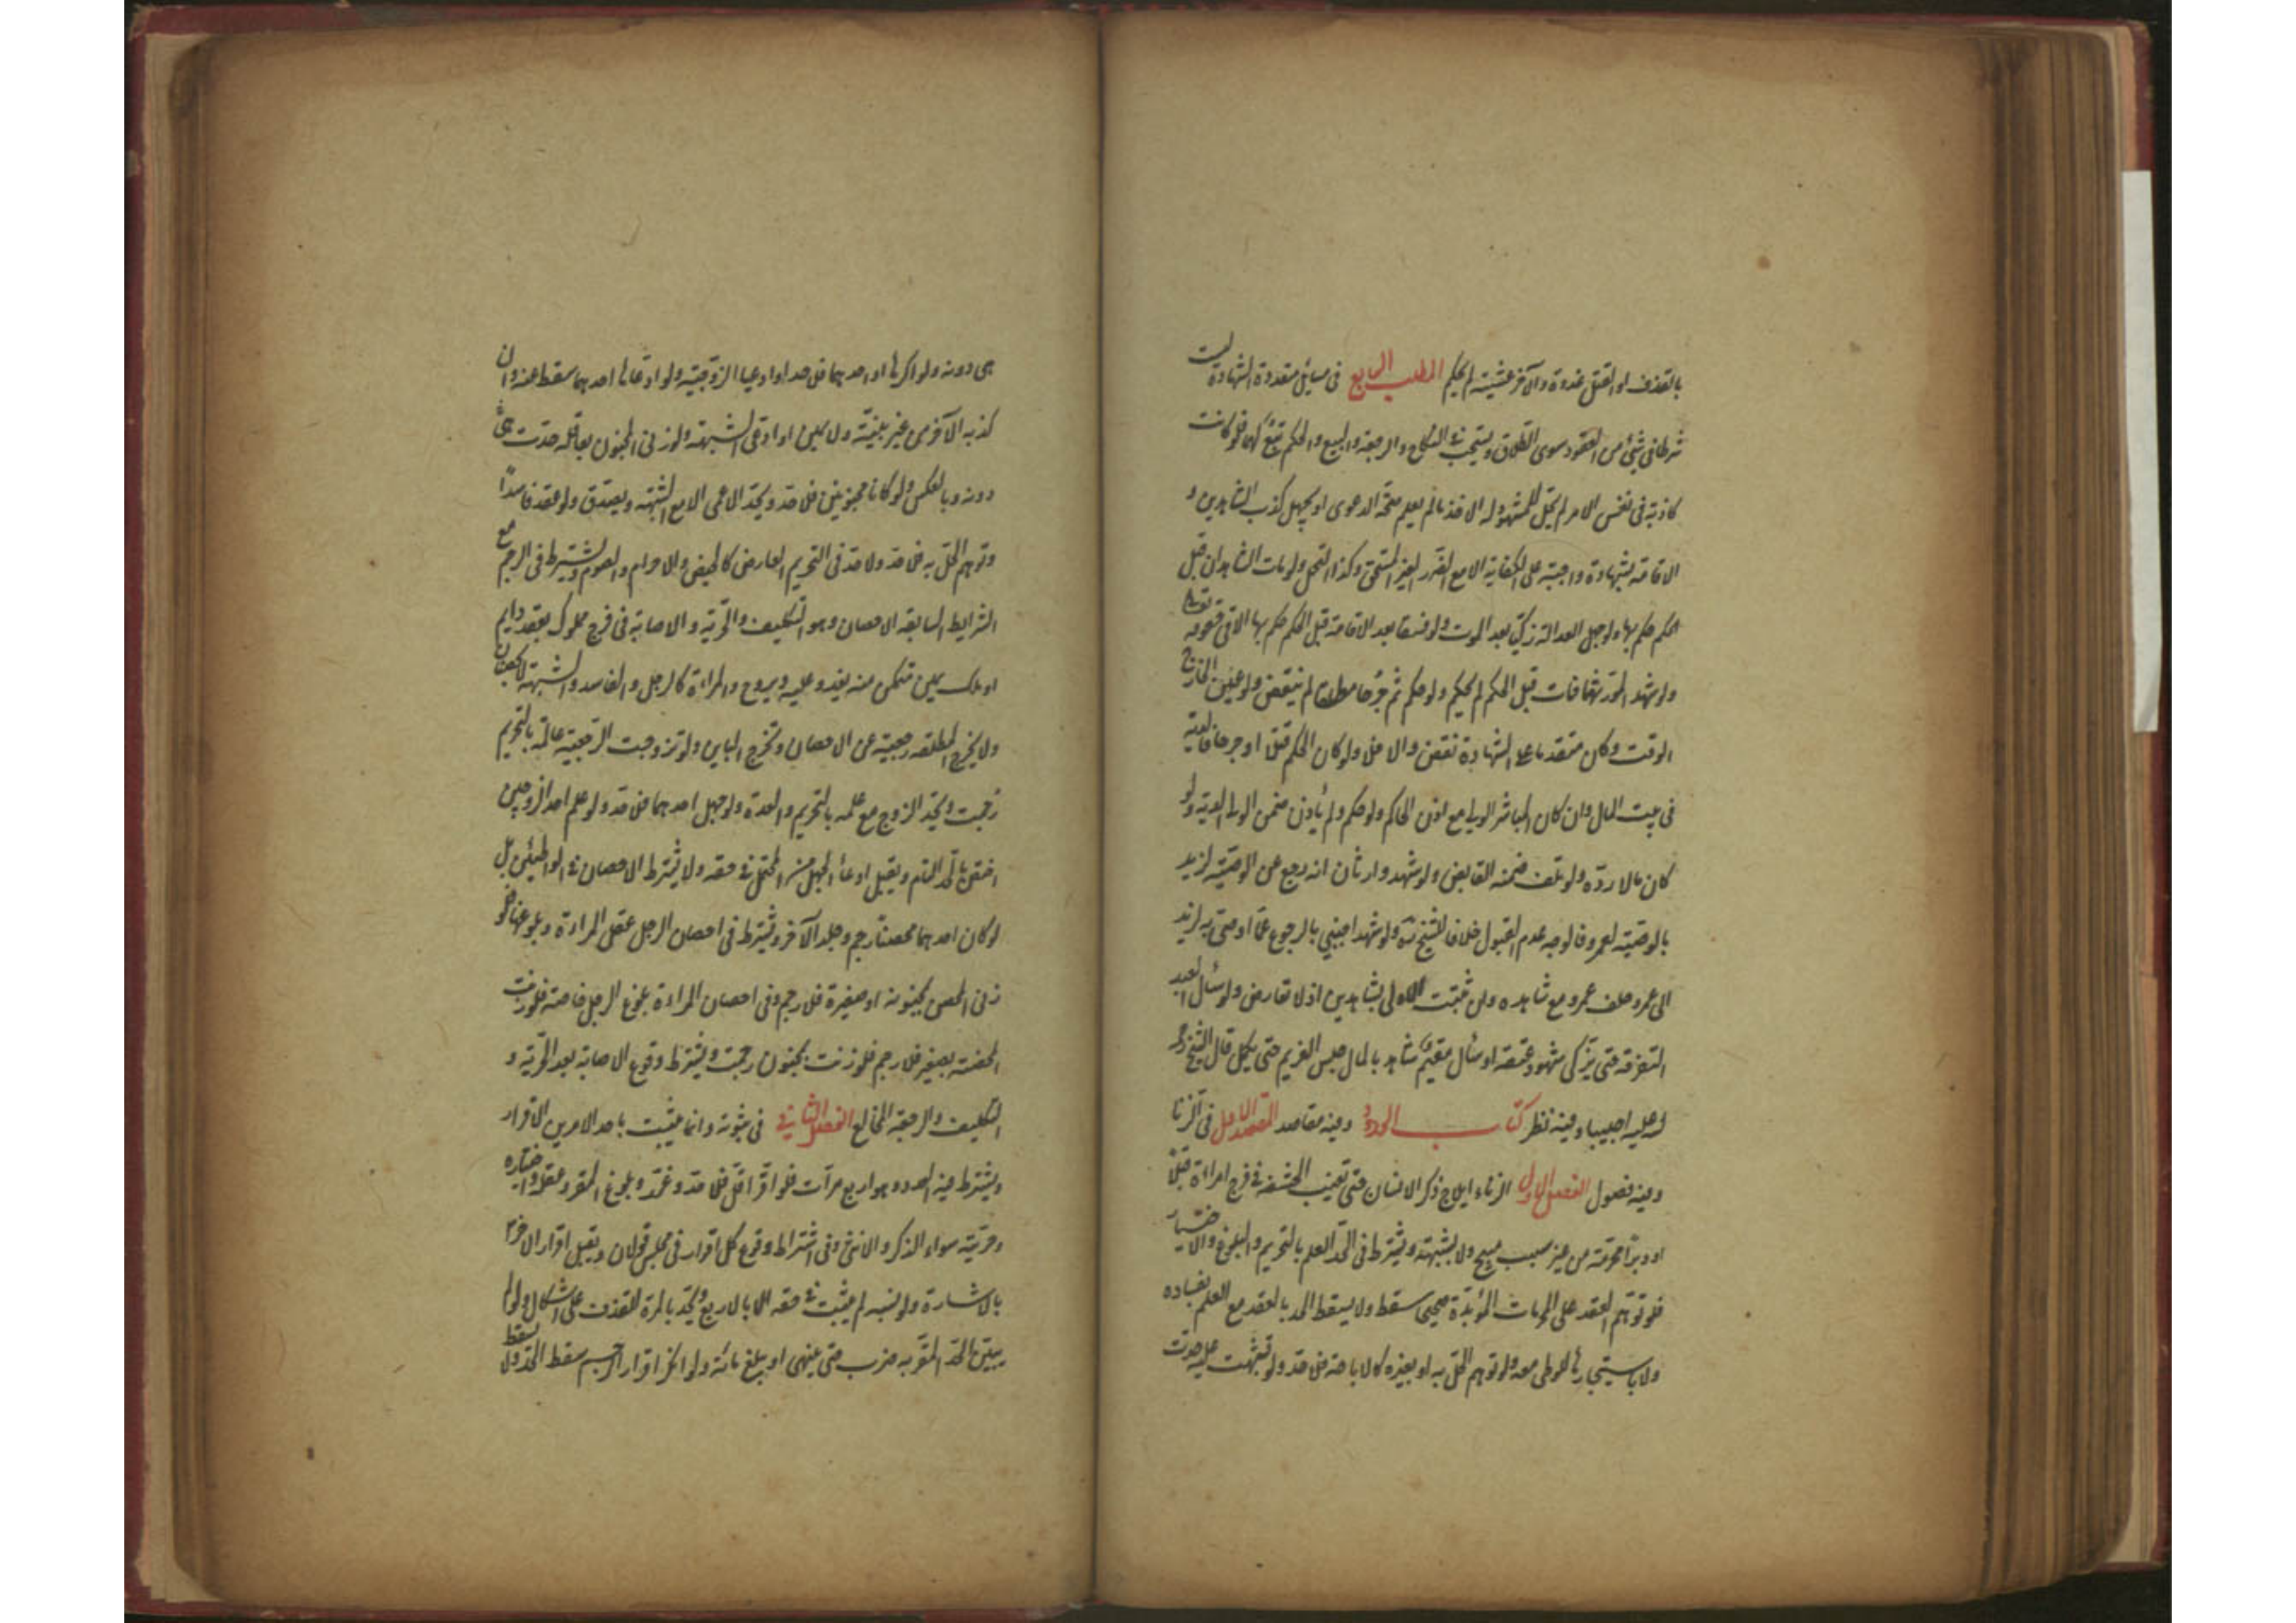 بالقذف او القتل غدوة والآخر عشية لم يحكم المطلب الرابع في مسائل متعددة الشهادة ليست
شرطا في شيء من العقود سوى الطلاق ويستحب في النكاح والرجعة والبيع والحكم تبع لها فلو كانت
كاذبة في نفس الامر لم يحل للمشهود له الاخذ ما لم يعلم صحة الدعوى او يجهل كذب الشاهدين و
الاقامة بالشهادة واجبة على الكفاية الا مع الضرر الغير المستحق وكذا التحمل ولو مات الشاهدان قبل
الحكم حكم بها ولو جهل العدالة زكي بعد الموت ولو فسقا بعد الاقامة قبل الحكم حكم بها الا في حقوقه تعالى
ولو شهدا لمورثهما فمات قبل الحكم لم يحكم ولو حكم ثم جرحا مطلقا لم ينقض ولو عين الجارح
الوقت وكان متقدما على الشهادة نقض والا فلا ولو كان الحكم قتلا او جرحا فالدية
في بيت المال وان كان المباشر الولي مع اذن الحاكم ولو حكم ولم يأذن ضمن الولي الدية ولو
كان مالا رده ولو تلف ضمنه القابض ولو شهد وارثان انه رجع عن الوصية لزيد
بالوصية لعمرو فالوجه عدم القبول خلافا للشيخ ولو شهد اجنبي بالرجوع عما اوصى به لزيد
الى عمرو حلف عمرو مع شاهده وان ثبتت الاولى بشاهدين اذ لا تعارض ولو سأل العبد
التفرقة حتى يزكي شهود عتقه او سأل مقيم شاهد بالمال حبس الغريم حتى يكمل قال الشيخ
اجيبا وفيه نظر كتاب الحدود وفيه مقاصد المقصد الاول في الزنا
وفيه فصول الفصل الاول الزناء ايلاج ذكر الانسان حتى تغيب الحشفة في فرج امراءة قبلا
او دبرا محرمة من غير سبب مبيح ولا شبهة ويشترط في الحد العلم بالتحريم والبلوغ والاختيار
فلو توهم العقد على المحرمات المؤبدة صحيحا سقط ولا يسقط الحد بالعقد مع العلم بفساده
ولا باستيجارها للوطي معه ولو توهم الحل به او بغيره كالاباحة فلا حد ولو تشبهت عليه حدت
هي دونه ولو اكرها او احدهما فلا حد او ادعيا الزوجية ولو ادعاها احدهما سقط عنه وان
كذبه الآخر من غير بينة ولا يمين او ادعى الشبهة ولو زنى المجنون بعاقلة حدت هي
دونه وبالعكس ولو كانا مجنونين فلا حد ويحد الاعمى الا مع الشبهة ويصدق ولو عقد فاسدا
وتوهم الحل به فلا حد ولا حد في التحريم العارض كالحيض والاحرام والصوم ويشترط في الرجم مع
الشرايط السابقة الاحصان وهو التكليف والحرية والاصابة في فرج مملوك بعقد دايم
او ملك يمين متمكن منه يغدو عليه ويروح والمراءة كالرجل والفاسد والشبهة لا يحصنان
ولا يخرج المطلقة رجعية عن الاحصان وتخرج الباين ولو تزوجت الرجعية عالمة بالتحريم
رجمت ويحد الزوج مع علمه بالتحريم والعدة ولو جهل احدهما فلا حد ولو علم احد الزوجين
اختص بالحد التام ويقبل ادعاء الجهل من المحتمل في حقه ولا يشترط الاحصان في الواطيين بل
لو كان احدهما محصنا رجم وجلد الآخر ويشترط في احصان الرجل عقل المراءة وبلوغها فلو
زنى المحصن بمجنونة او صغيرة فلا رجم وفي احصان المراءة بلوغ الرجل خاصة فلو زنت
المحصنة بصغير فلا رجم فلو زنت بمجنون رجمت ويشترط وقوع الاصابة بعد الحرية و
التكليف والرجعة المخالع الفصل الثاني في ثبوته وانما يثبت باحد الامرين الاقرار
ويشترط فيه العدد وهو اربع مرات فلو اقر اقل فلا حد وعزر وبلوغ المقر وعقله واختياره
وحريته سواء الذكر والانثى وفي اشتراط وقوع كل اقرار في مجلس قولان ويقبل اقرار الاخرس
بالاشارة ولو نسبه لم يثبت في حقه الا بالاربع ويحد بالمرة للقذف على اشكال ولو لم
يبين الحد المقر به ضرب حتى ينهى او يبلغ مائة ولو انكر اقرار الرجم سقط الحد ولا يسقط